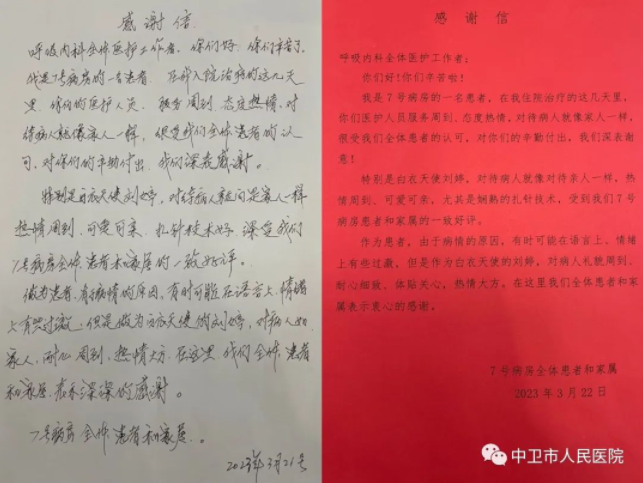 感谢信
呼吸内科全体医护工作者，你们好，你们辛苦了，
我是7号病房的一名患者，在我入院治病的这几天
里，你们的医护人员，服务周到、态度热情，对
待病人就像家人一样，很受我们全体患者的认
可，对你们的辛勤付出，我们深表感谢。
特别是白衣天使刘婷，对待病人就向是家人一样
热情周到，可爱可亲，扎针技术好，深受我们
7号病房全体患者和家属的一致好评。
做为患者，有于病情的原因，有时可能在语言上、情绪
上有些过激，但是做为白衣天使的刘婷，对病人如
家人，耐心周到，热情大方，在这里，我们全体患者
和家属，表示深深的感谢。
7号病房全体患者和家属。
2023年3月21号
感谢信
呼吸内科全体医护工作者：
你们好!你们辛苦啦!
我是7号病房的一名患者，在我住院治疗的这几天里，
你们医护人员服务周到、态度热情，对待病人就像家人一样，
很受我们全体患者的认可，对你们的辛勤付出，我们深表谢
意!
特别是白衣天使刘婷，对待病人就像对待亲人一样，热
情周到、可爱可亲，尤其是娴熟的扎针技术，受到我们7号
病房患者和家属的一致好评。
作为患者，由于病情的原因，有时可能在语言上、情绪
上有些过激，但是作为白衣天使的刘婷，对病人礼貌周到、
耐心细致、体贴关心，热情大方。在这里我们全体患者和家
属表示衷心的感谢。
7号病房全体患者和家属
2023年3月22日
中卫市人民医院